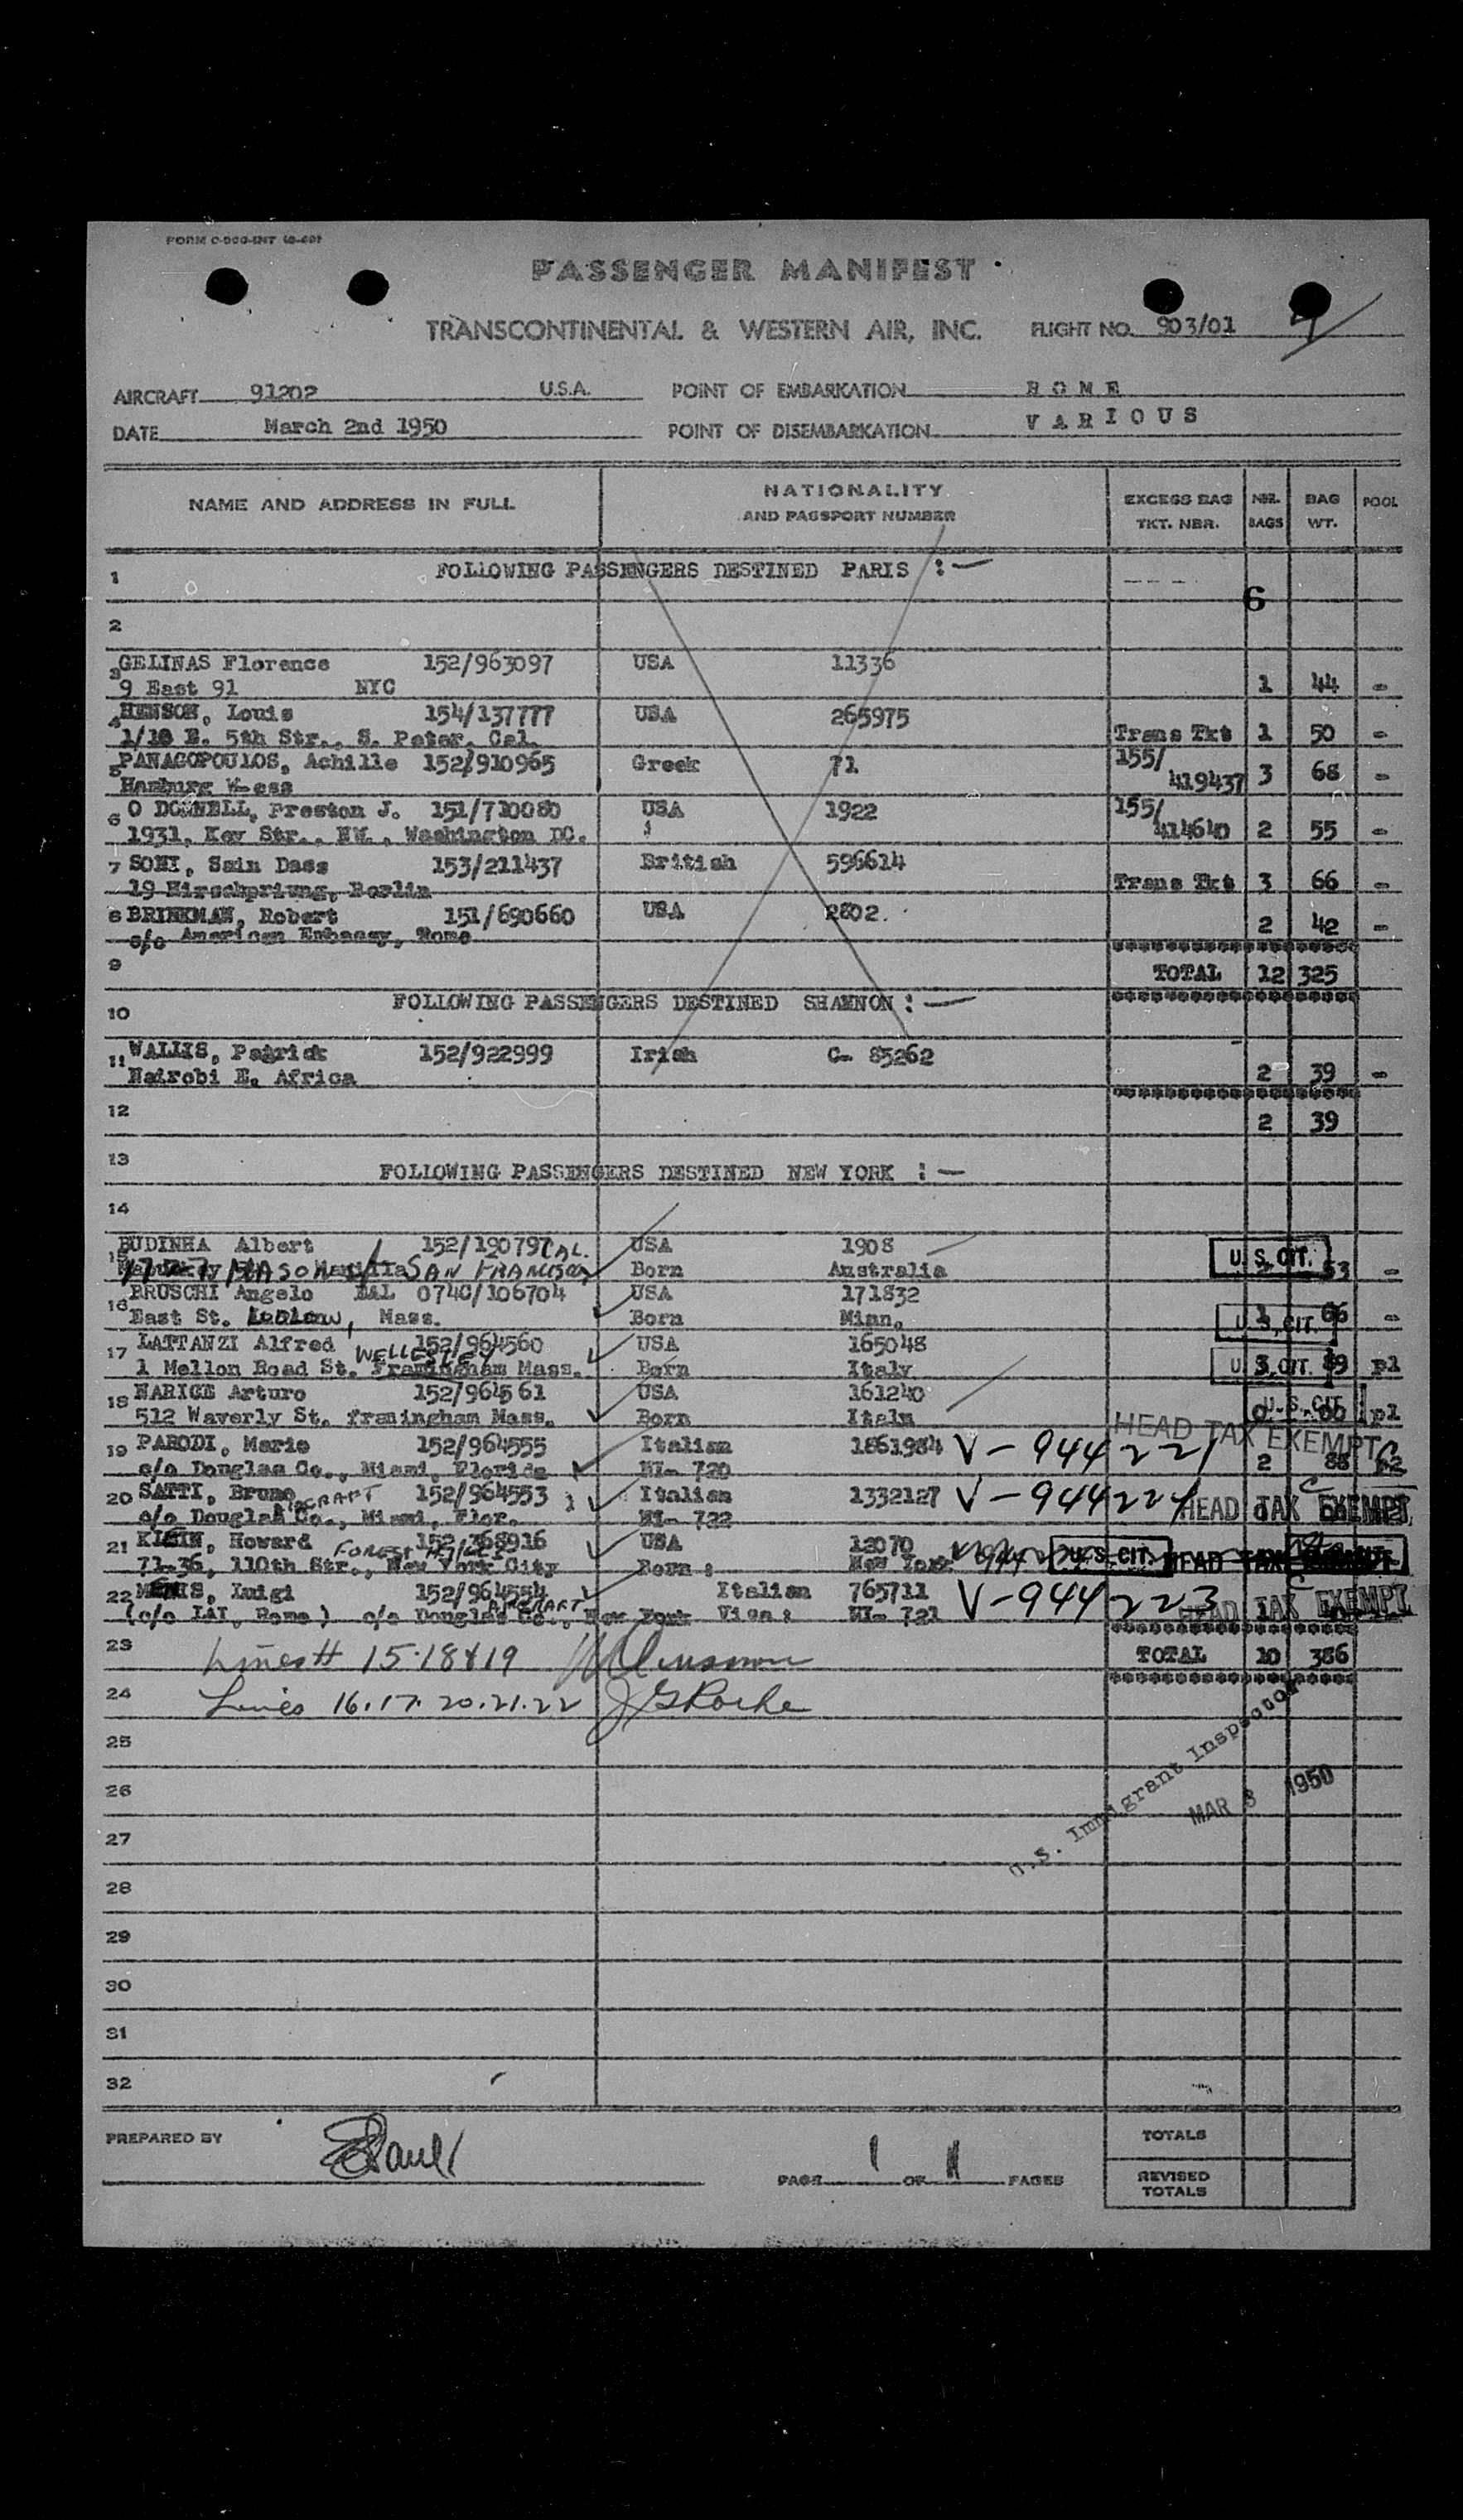 PASSENGER MANIFEST
TRANSCONTINENTAL & WESTERN AIR, INC. FLIGHT NO. 903/01
AIRCRAFT 91202 U.S.A. POINT OF EMBARKATION ROME
DATE March 2nd 1950 POINT OF DISEMBARKATION VARIOUS
NAME AND ADDRESS IN FULL NATIONALITY AND PASSPORT NUMBER EXCESS BAG TKT. NBR. NBR. BAGS BAG WT. POOL
1 FOLLOWING PASSENGERS DESTINED PARIS :-
6
2
3 GELINAS Florence 152/963097 USA 11336
9 East 91 NYC 1 44 -
4 HENSON, Louis 154/137777 USA 265975
E. 5th Str., S. Peter. Cal. Trans Tkt 1 50 -
5 PANAGOPOULOS, Achille 152/910965 Greek 71 155/
Hamburg W-ess 419437 3 68 -
6 O DONNELL, Preston J. 151/710080 USA 1922 155/
1931, Key Str., NW., Washington DC. 414640 2 55 -
7 SONI, Sain Dass 153/211437 British 596614
19 Hirschpriung, Berlin Trans Tkt 3 66 -
8 BRINKMAN, Robert 151/690660 USA 2802.
c/o American Embassy, Rome 2 42 -
9 TOTAL 12 325
10 FOLLOWING PASSENGERS DESTINED SHANNON :-
11 WALLIS, Patrick 152/922999 Irish C- 85262
Nairobi E. Africa 2 39 -
12 2 39
13 FOLLOWING PASSENGERS DESTINED NEW YORK :-
14
15 BUDINHA Albert 152/190797 CAL. USA 1908
MASON SAN FRANCISCO Born Australia U.S. CIT. 53 -
16 BRUSCHI Angelo 0740/106704 USA 171832
East St. LUDLOW, Mass. Born Minn. U.S. CIT. 66 -
17 LATTANZI Alfred 152/964560 USA 165048
WELLESLEY
1 Mellon Road St. Framingham Mass. Born Italy U.S. CIT. 3 89 pl
18 NARICE Arturo 152/964561 USA 161240
512 Waverly St. framingham Mass. Born Italy 0 U.S. CIT. pl
19 PARODI, Mario 152/964555 Italian 1861984 V-944221 HEAD TAX EXEMPT
c/o Douglas Co., Miami, Florida NI- 720 2 88
20 SATTI, Bruno 152/964553 Italian 1332127 V-944224 HEAD TAX EXEMPT
AIRCRAFT
c/o Douglas Co., Miami, Flor. NI- 722
21 KLEIN, Howard 152/368916 USA 12070
FOREST HILLS
71-36, 110th Str., New York City Born : New York U.S. CIT. HEAD TAX
22 Luigi 152/964554 Italian 765711 V-944223 HEAD TAX EXEMPT
AIRCRAFT
(c/o LAI, Rome) c/o Douglas Co., New York Visa : NI- 721
23 Lines # 15·18 & 19 TOTAL 10 386
24 Lines 16.17.20.21.22 J G Roche
25
U.S. Immigrant Inspector
26 MAR 3 1950
27
28
29
30
31
32
PREPARED BY TOTALS
PAGE 1 OF 1 PAGES REVISED TOTALS